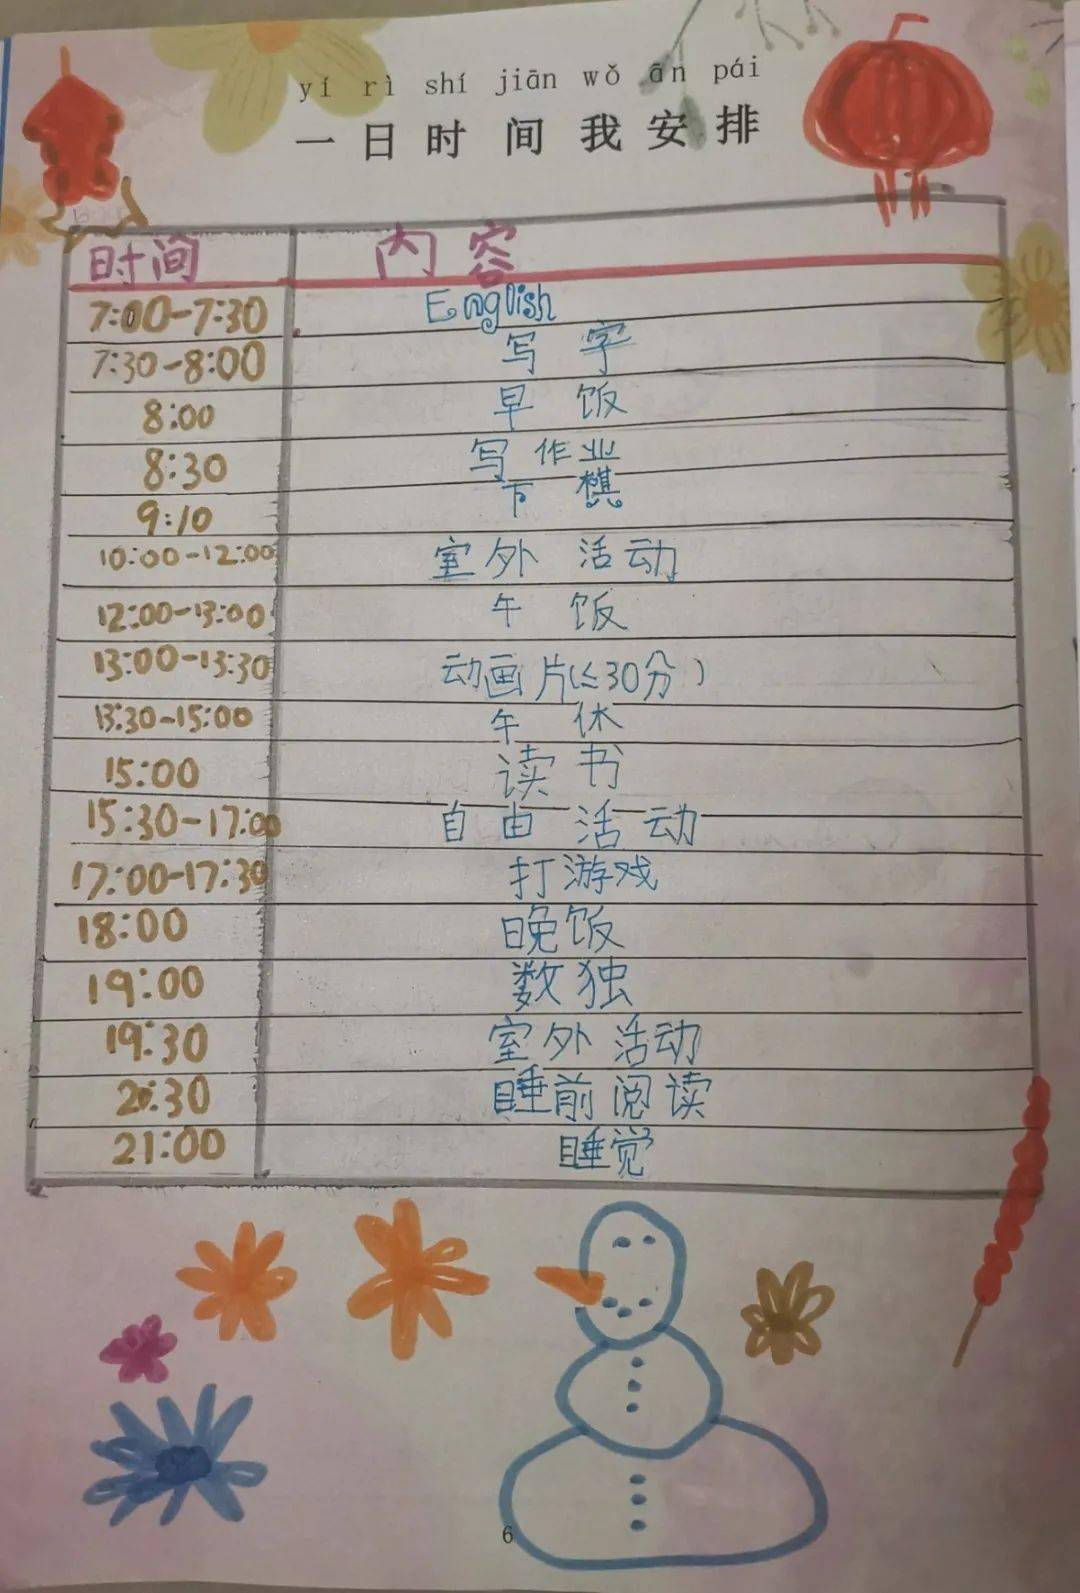 yí rì shí jiān wǒ ān pái
一日时间我安排
时间 内容
7:00-7:30 English
7:30-8:00 写字
8:00 早饭
8:30 写作业
9:10 下棋
10:00-12:00 室外活动
12:00-13:00 午饭
13:00-13:30 动画片(≤30分)
13:30-15:00 午休
15:00 读书
15:30-17:00 自由活动
17:00-17:30 打游戏
18:00 晚饭
19:00 数独
19:30 室外活动
20:30 睡前阅读
21:00 睡觉
6